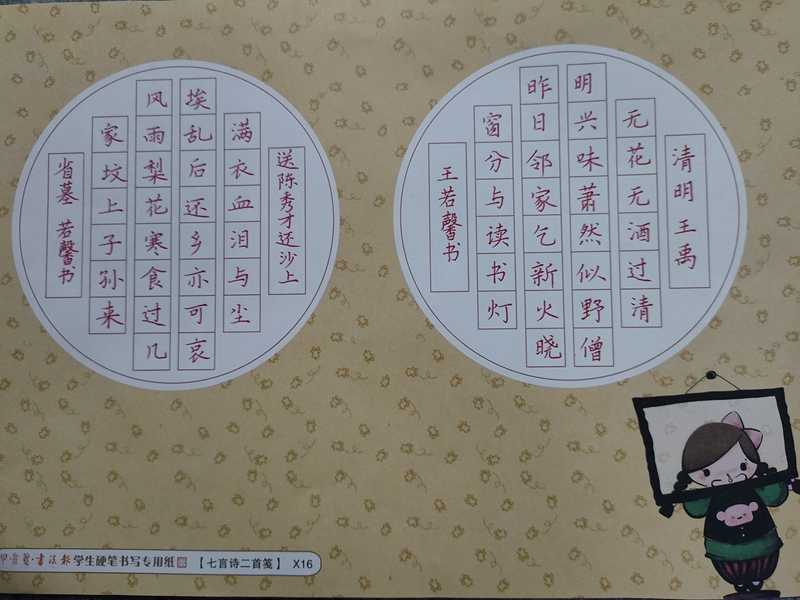 清明王禹
无花无酒过清
明兴味萧然似野僧
昨日邻家乞新火晓
窗分与读书灯
王若馨书
送陈秀才还沙上
满衣血泪与尘
埃乱后还乡亦可哀
风雨梨花寒食过几
家坟上子孙来
省墓 若馨书
书法报 学生硬笔书写专用纸 【七言诗二首笺】 X16